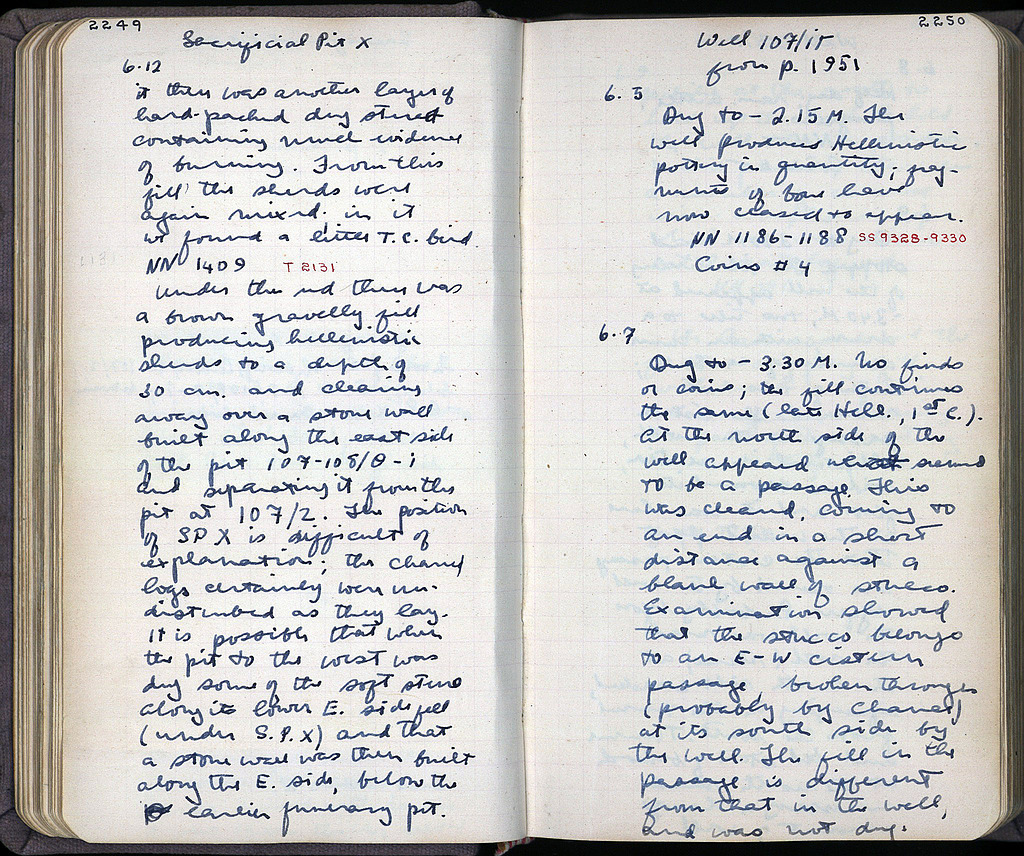 2249
Sacrificial Pit X
6.12
it there was another layer of
hard-packed dug
containing much evidence
of burning. From this
fill the sherds were
again mixed. in it
we found a little T.C. bird.
NN 1409 T 2131
Under the red there was
a brown gravelly fill
producing hellenistic
sherds to a depth of
30 cm. and cleaning
away over a stone wall
built along the east side
of the pit 107-108/Θ-i
and separating it from the
pit at 107/2. The position
of SP X is difficult of
explanation; the charred
logs certainly were un-
disturbed as they lay.
It is possible that when
the pit to the west was
dug some of the soft
along its lower E. side fell
(under S.P.X) and that
a stone wall was then built
along the E. side, below the
earlier funerary pit.
2250
Well 107/ιπ
from p. 1951
6.5
Dug to - 2.15 M. The
well produces Hellenistic
pottery in quantity; frag-
ments of bone have
now ceased to appear.
NN 1186-1188 SS 9328-9330
Coins # 4
6.7
Dug to - 3.30 M. No finds
or coins; the fill continues
the same (late Hell., 1st C.).
At the north side of the
well appeared what seemed
to be a passage. This
was cleared, coming to
an end in a short
distance against a
blank wall of stucco.
Examination showed
that the stucco belongs
to an E-W cistern
passage, broken through
(probably by chance)
at its south side by
the well. The fill in the
passage is different
from that in the well,
and was not dug.